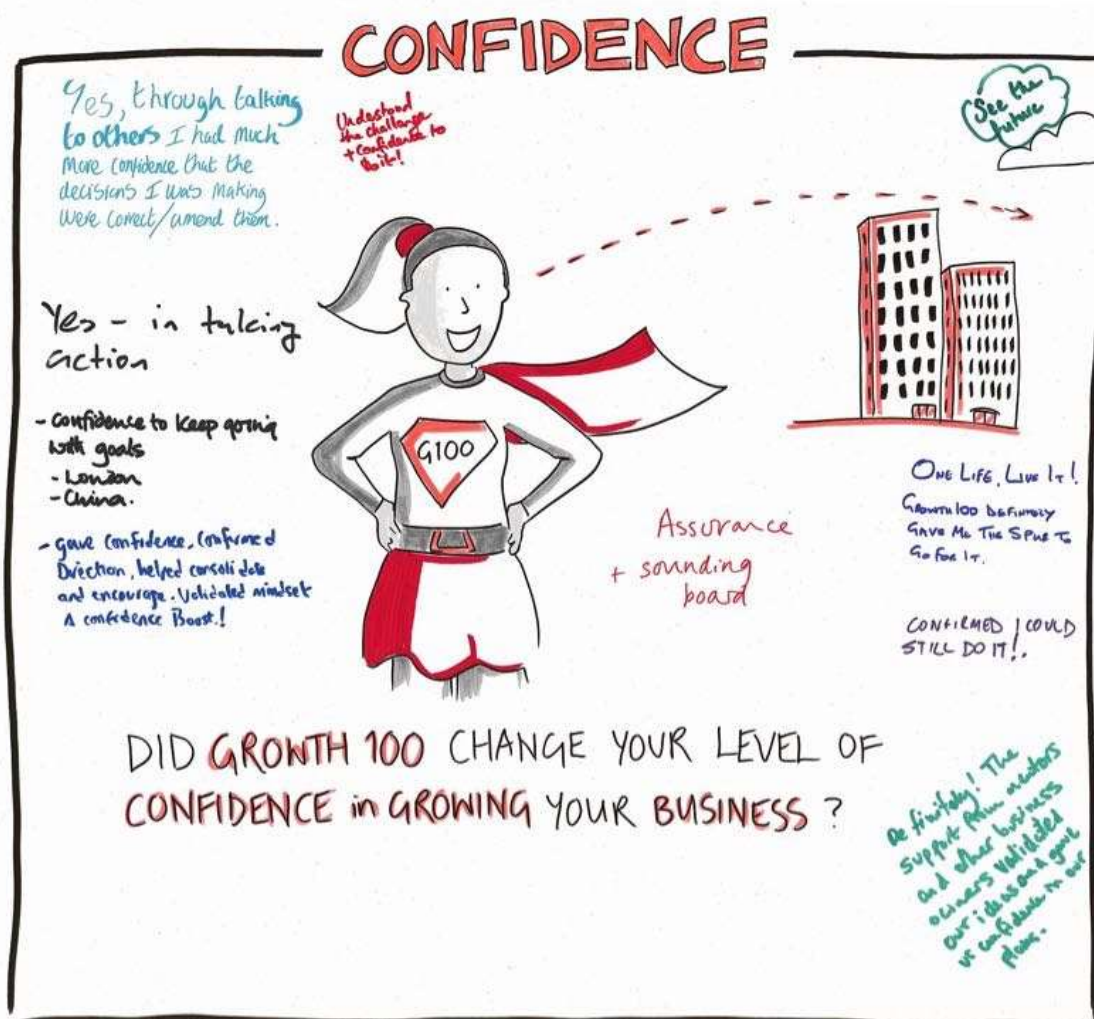 CONFIDENCE
Yes, through talking
to others I had much
More confidence that the
decisions I was making
were correct/amend them.
Understand
the challenge
+ confidence to
do it!
See the
future
Yes - in taking
action
- Confidence to keep going
with goals
- London
- China.
- gave confidence, confirmed
Direction, helped consolidate
and encourage. Validated mindset
A confidence Boost!
G100
Assurance
+ sounding
board
ONE LIFE, LIVE IT!
GROWTH 100 DEFINITELY
GAVE ME THE SPUR TO
GO FOR IT.
CONFIRMED I COULD
STILL DO IT!.
DID GROWTH 100 CHANGE YOUR LEVEL OF
CONFIDENCE in GROWING YOUR BUSINESS?
Definitely! The
support from mentors
and other business
owners validated
our ideas and gave
us confidence in our
plans.